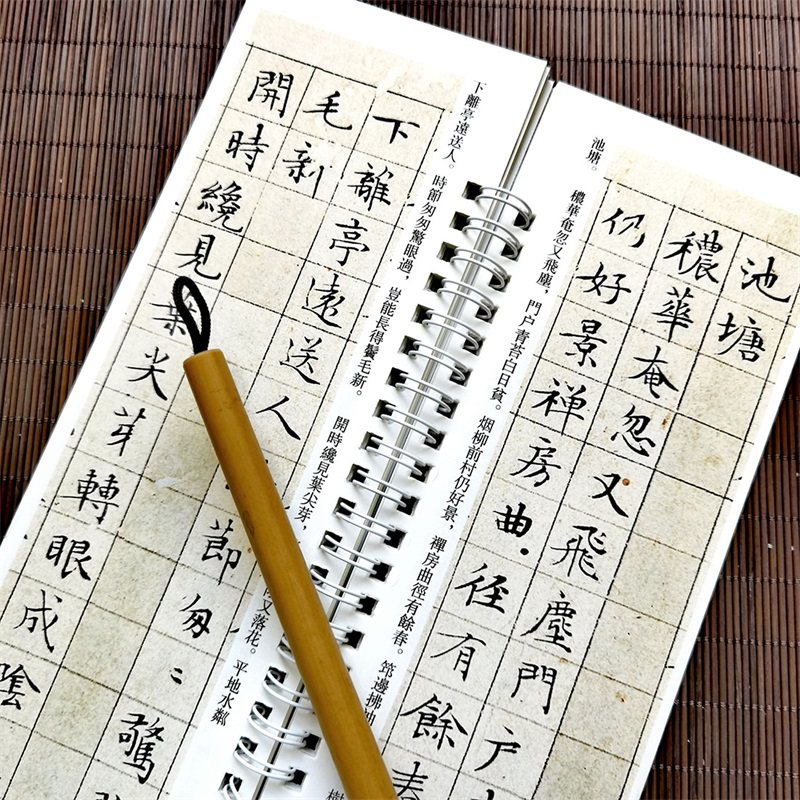 池塘
穠華奄忽又飛塵門户
仍好景禅房曲径有餘春
池塘。
穠華奄忽又飛塵，門户青苔白日貧。烟柳前村仍好景，禪房曲徑有餘春。笻邊拂
下離亭遠送人。時節匆匆驚眼過，豈能長得鬢毛新。
開時纔見葉尖芽，
又落花。平地水粼
下離亭遠送人
節匆〻驚
毛新
開時纔見葉尖芽轉眼成陰